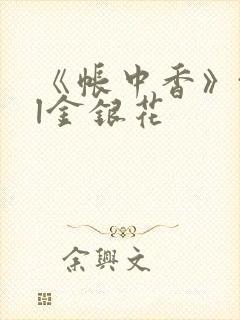 《帐中香》
|金银花
余兴文